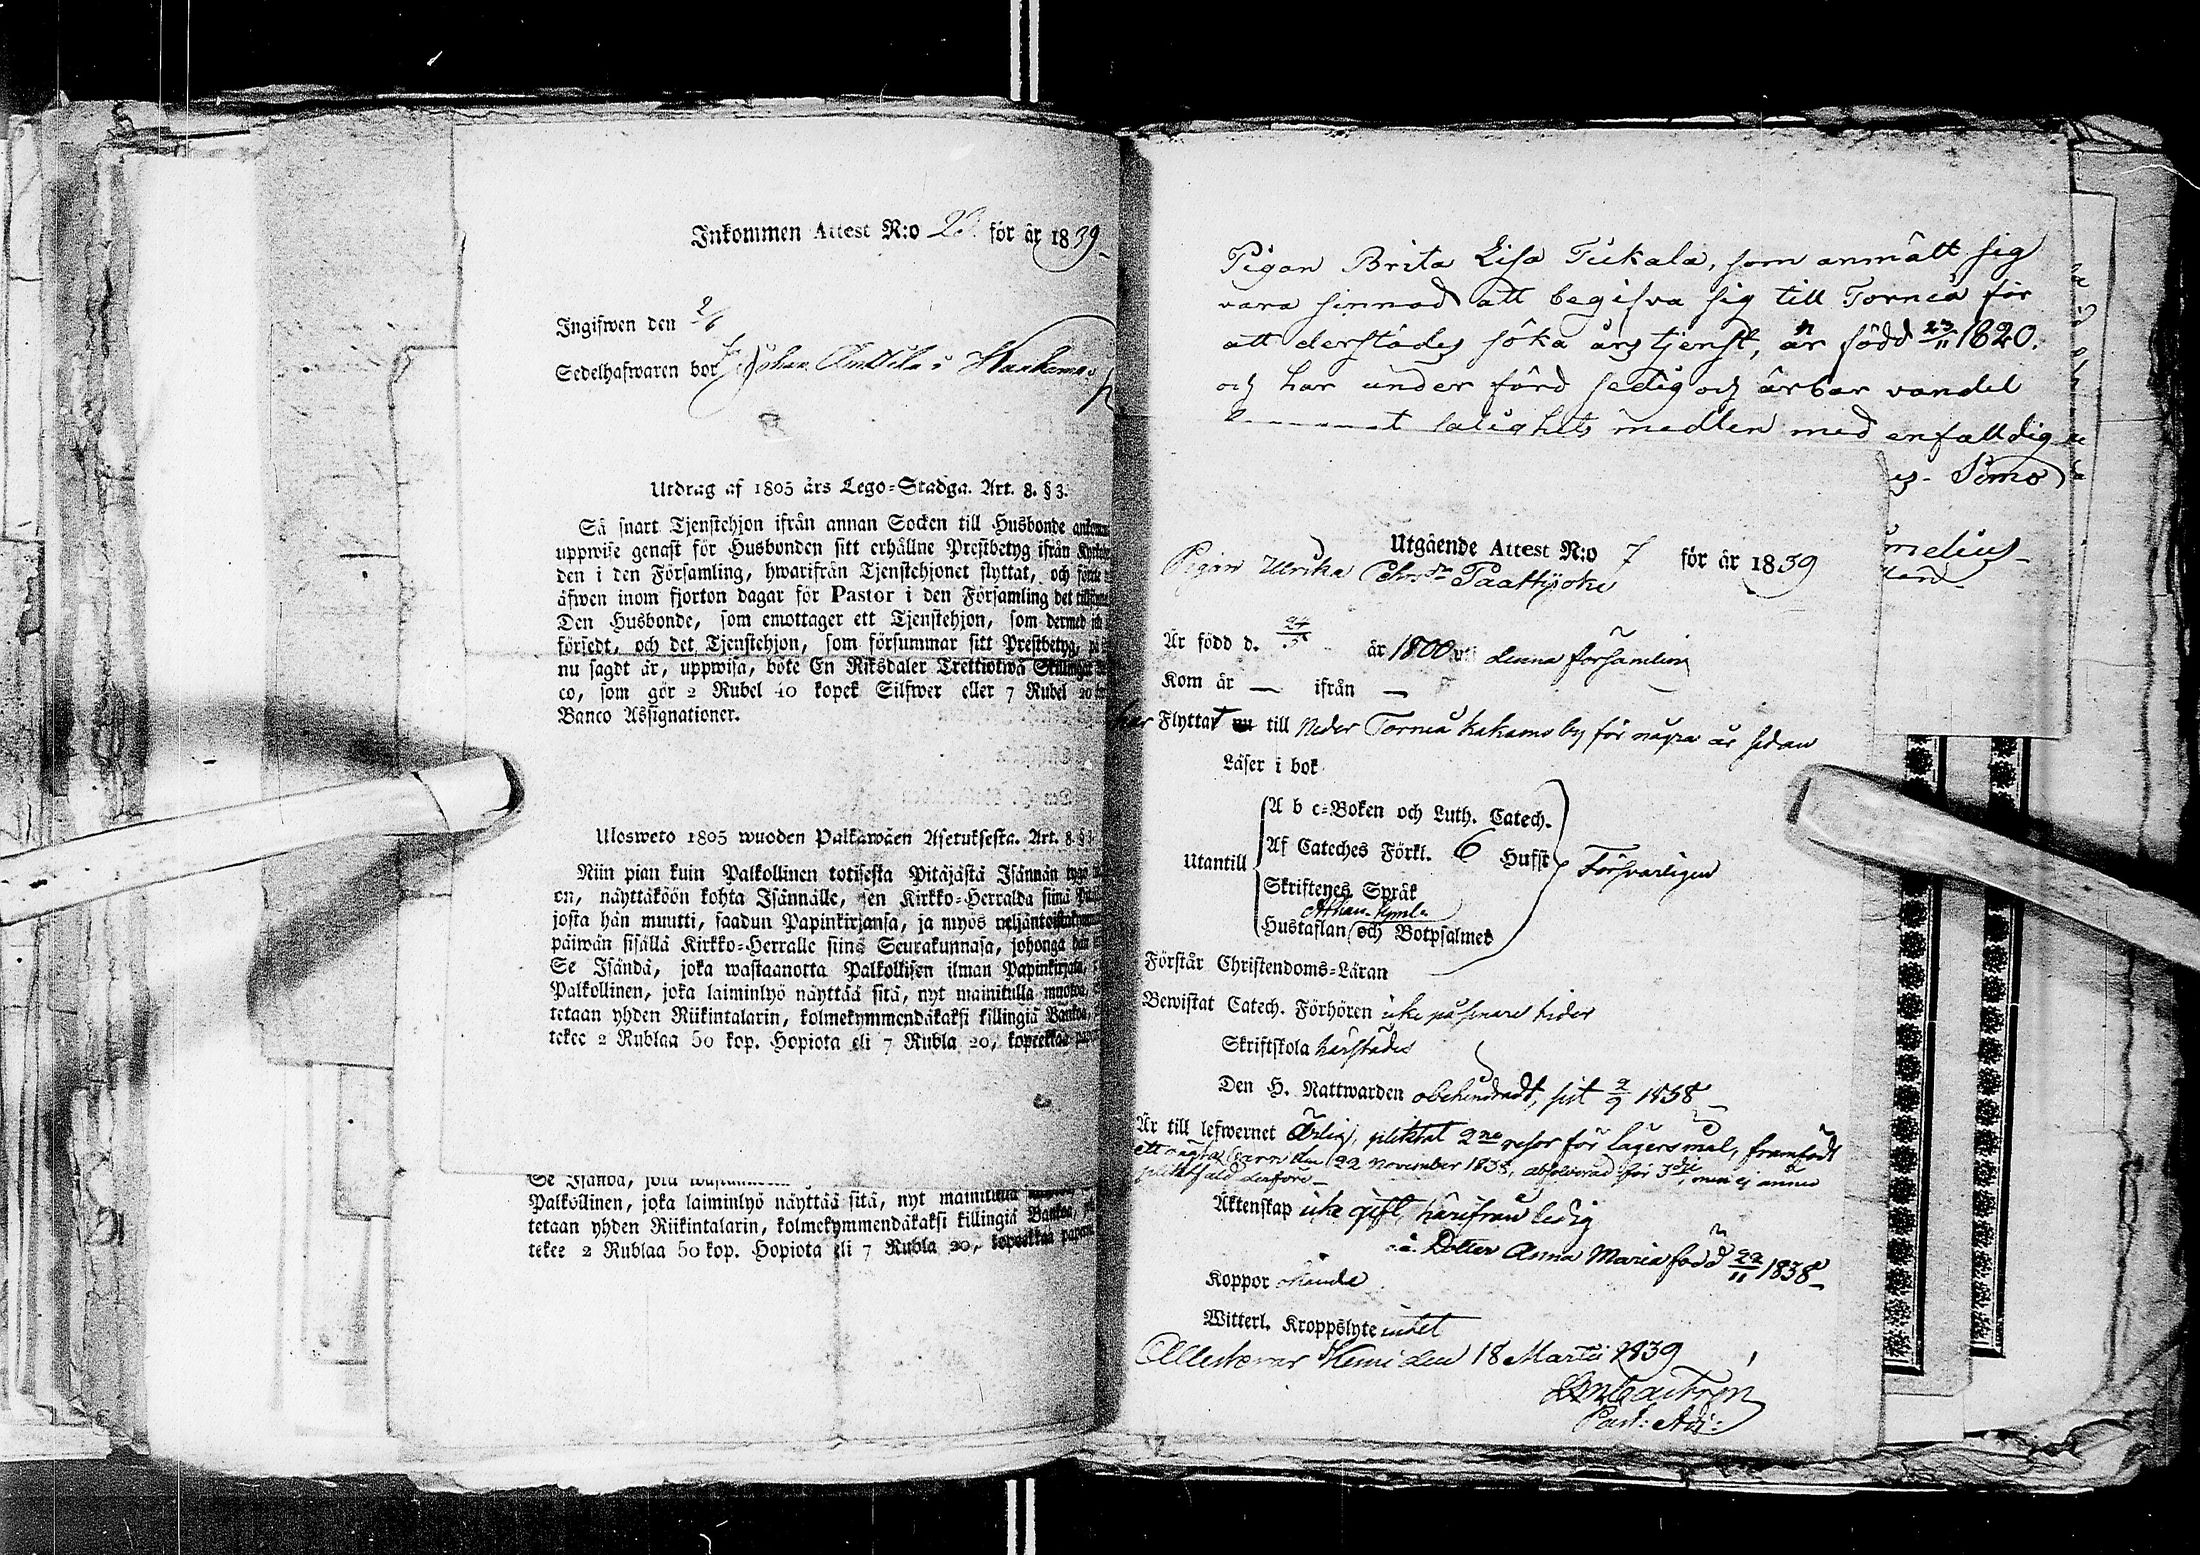 Inkommen Attest N:o för år 1839
Ingifwen den 2/6
Sedelhafwaren bor Johan
Utdrag af 1805 års Lego-Stadga. Art. 8. § 3.
Så snart Tjenstehjon ifrån annan Socken till Husbonde
uppwise genast för Husbonden sitt erhållne Prestbetyg ifrån
den i den Församling, hwarifrån Tjenstehjonet flyttat, och
äfwen inom fjorton dagar för Pastor i den Församling det
Den Husbonde, som emottager ett Tjenstehjon, som dermed
försedt, och det Tjenstehjon, som försummar sitt Prestbetyg, på
nu sagdt är, uppwisa, böte En Riksdaler Trettiotwå Skillingar
co, som gör 2 Rubel 40 kopek Silfwer eller 7 Rubel 20
Banco Assignationer.
Ulosweto 1805 wuoden Palkawäen Asetuksesta. Art. 8 § 3
Niin pian kuin Palkollinen toisesta Pitäjästä Isännän tygö
on, näyttäköön kohta Isännälle, sen Kirkko-Herralda siinä
josta hän muutti, saadun Papinkirjansa, ja myös
päiwän sisällä Kirkko-Herralle siinä Seurakunnasa, johonga hän
Se Isändä, joka wastaanotta Palkollisen ilman Papinkirjata,
Palkollinen, joka laiminlyö näyttää sitä, nyt mainitulla muotoa,
tetaan yhden Riikintalarin, kolmekymmendäkaksi killingiä Bankoa,
tekee 2 Rublaa 50 kop. Hopiota eli 7 Rubla 20, kopeekkaa
Se Isändä, joka
Palkollinen, joka laiminlyö näyttää sitä, nyt mainitulla
tetaan yhden Riikintalarin, kolmekymmendäkaksi killingiä Bankoa,
tekee 2 Rublaa 50 kop. Hopiota eli 7 Rubla 20, kopeekkaa
Pigan Brita Lisa Tiikala, som anmält sig
vara sinnad att begifva sig till Torneå för
att derstädes söka årstjenst, är född 23/11 1820.
och har under förd sedig och ärbar vandel
salighets medlen med enfalldig
Simo
Utgående Attest N:o 7 för år 1839
Pigan Ulrika Paattijoki
Är född d. 24/5 år 1800 uti denna församling
Kom år — ifrån —
har Flyttat till Neder Torneå Kakamo by för några år sedan
Läser i bok
Utantill
A b c-Boken och Luth. Catech.
Af Cateches Förkl. 6 Hufst
Skriftenes Språk
Athan. Symb.
Hustaflan och Botpsalmer
Försvarligen
Förstår Christendoms-Läran
Bewistat Catech. Förhören icke på senare tider
Skriftskola härstädes
Den H. Nattwarden obehindradt, sist 2/9 1838
Är till lefwernet Ärlig, pliktat 2ne resor för lägersmål, framfödt
ett oägta barn den 22 November 1838, absolverad för 3dje, men ej ännu
pliktfäld derföre
Äktenskap icke gift, härifrån ledig
Dotter Anna Maria född 22/11 1838
Koppor
Witterl. Kroppslyte intet
Attesterar Kemi den 18 Martii 1839
Castrén
Past: Adj: